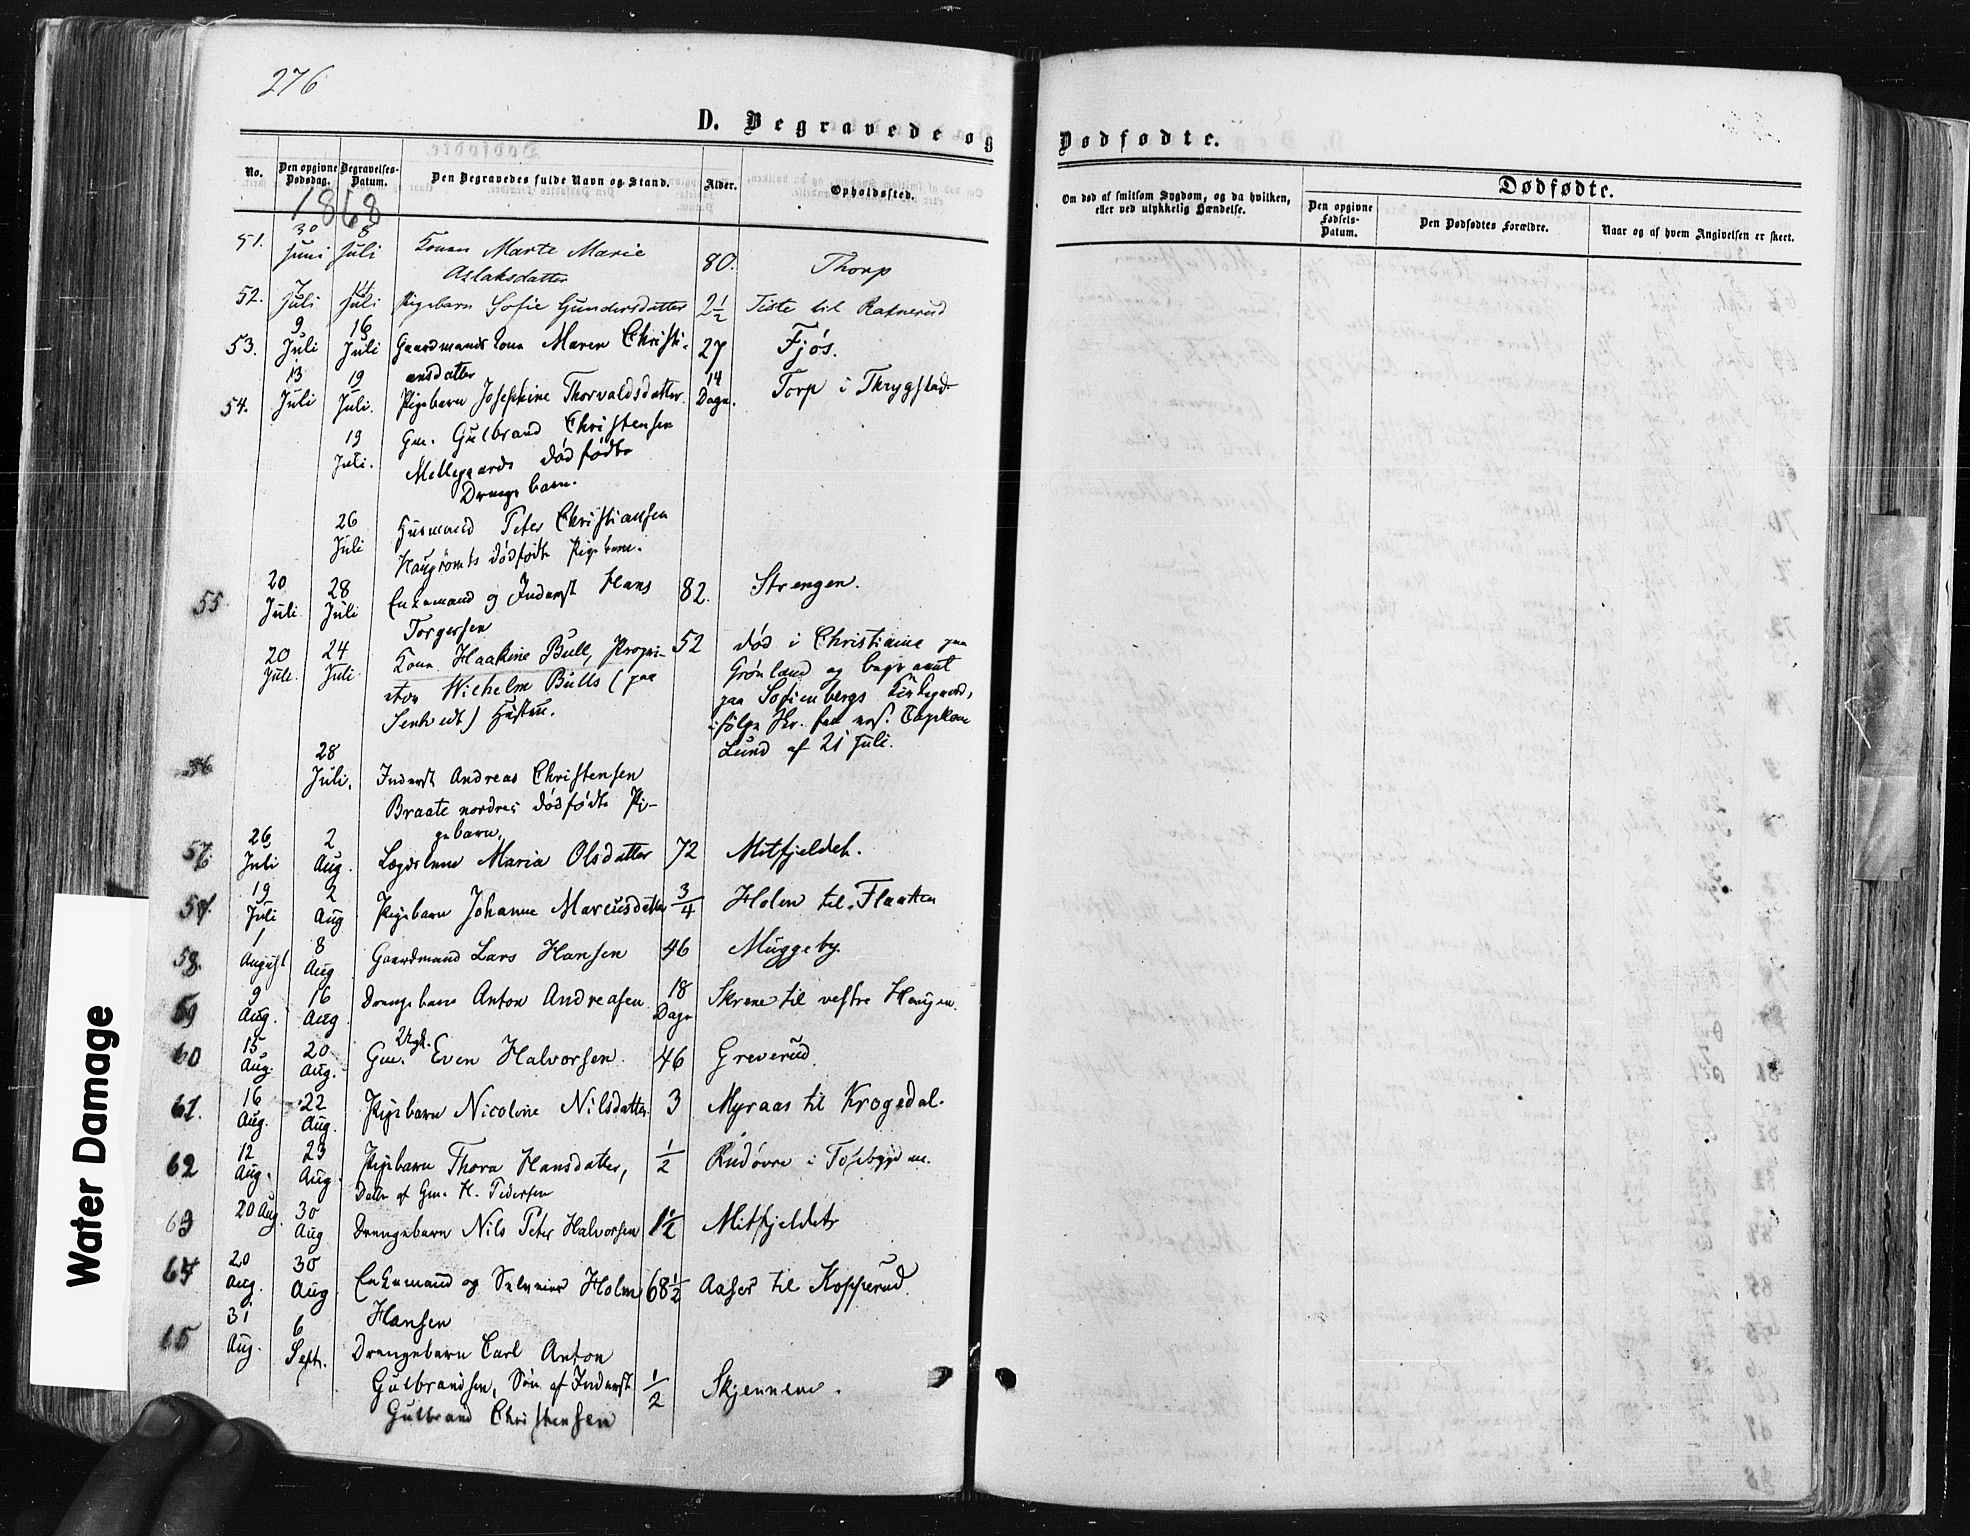 276
D. Begravede og
Dødfødte.
No.
Den opgivne Dødsdag.
Begravelses-Datum.
Den Begravedes fulde Navn og Stand.
Alder.
Opholdssted.
Om død af smitsom Sygdom, og da hvilken,
eller ved ulykkelig Hændelse.
Dødfødte.
Den opgivne Fødsels-Datum.
Den Dødfødtes Forældre.
Naar og af hvem Angivelsen er skeet.
1868
51. 30 Juni 8 Juli Konen Marte Marie
Aslaksdatter 80. Thorp
52. 7 Juli 14 Juli Pigebarn Sofie Gundersdatter 2½ Tiste til Raknerud
53. 9 Juli 16 Juli Gaardmands Kone Maren Christi-
ansdatter 27 Fjøs.
54. 13 Juli 19 Juli. Pigebarn Josephine Thorvaldsdatter 14 Dage. Torp i Thrygstad
19 Juli. Gm. Gulbrand Christensen
Mellegaards dødfødte
Drengebarn.
26 Juli Husmand Peter Christiansen
dødfødte Pigebarn.
55 20 Juli 28 Juli Enkemand og Inderst Hans
Torgersen 82. Strengen.
20 Juli 24 Juli Kone Haakine Bull, Propri-
etær Wilhelm Bulls (paa
Hustru. 52 død i Christiania paa
Grønland og begravet
paa Sofienbergs Kirkegaard,
ifølge Skr. fra Capellan
Lund af 21 Juli.
56 28 Juli. Inderst Andreas Christensen
Braate nordres dødfødte Pi-
gebarn.
57 26 Juli 2 Aug. Lægdslem Maria Olsdatter 72 Mitfjeldet.
58. 19 Juli 2 Aug Pigebarn Johanne Marcusdatter ¾ Holen til Flaaten
58. 1 August 8 Aug Gaardmand Lars Hansen 46 Muggeby.
59 9 Aug. 16 Aug Drengebarn Anton Andreasen 18 Dage Skrene til vestre Haugen.
60 15 Aug. 20 Aug. Gm. Ungk. Even Halvorsen. 46 Greverud.
61. 16 Aug. 22 Aug. Pigebarn Nicoline Nilsdatter 3 Myraas til Krogedal.
62 12 Aug. 23 Aug. Pigebarn Thora Hansdatter, ½ Rudøvre i
Datr af Gm. H. Pedersen
63 20 Aug. 30 Aug Drengebarn Nils Peter Halvorsen 1½ Mitfjeldet
64 20 Aug. 30 Aug Enkemand og Holm 68½ Aaser til Kopperud.
Hansen
65 31 Aug. 6 Sept. Drengebarn Carl Anton
Gulbrandsen, Søn af Inderst ½ Skjennene.
Gulbrand Christensen
Water Damage